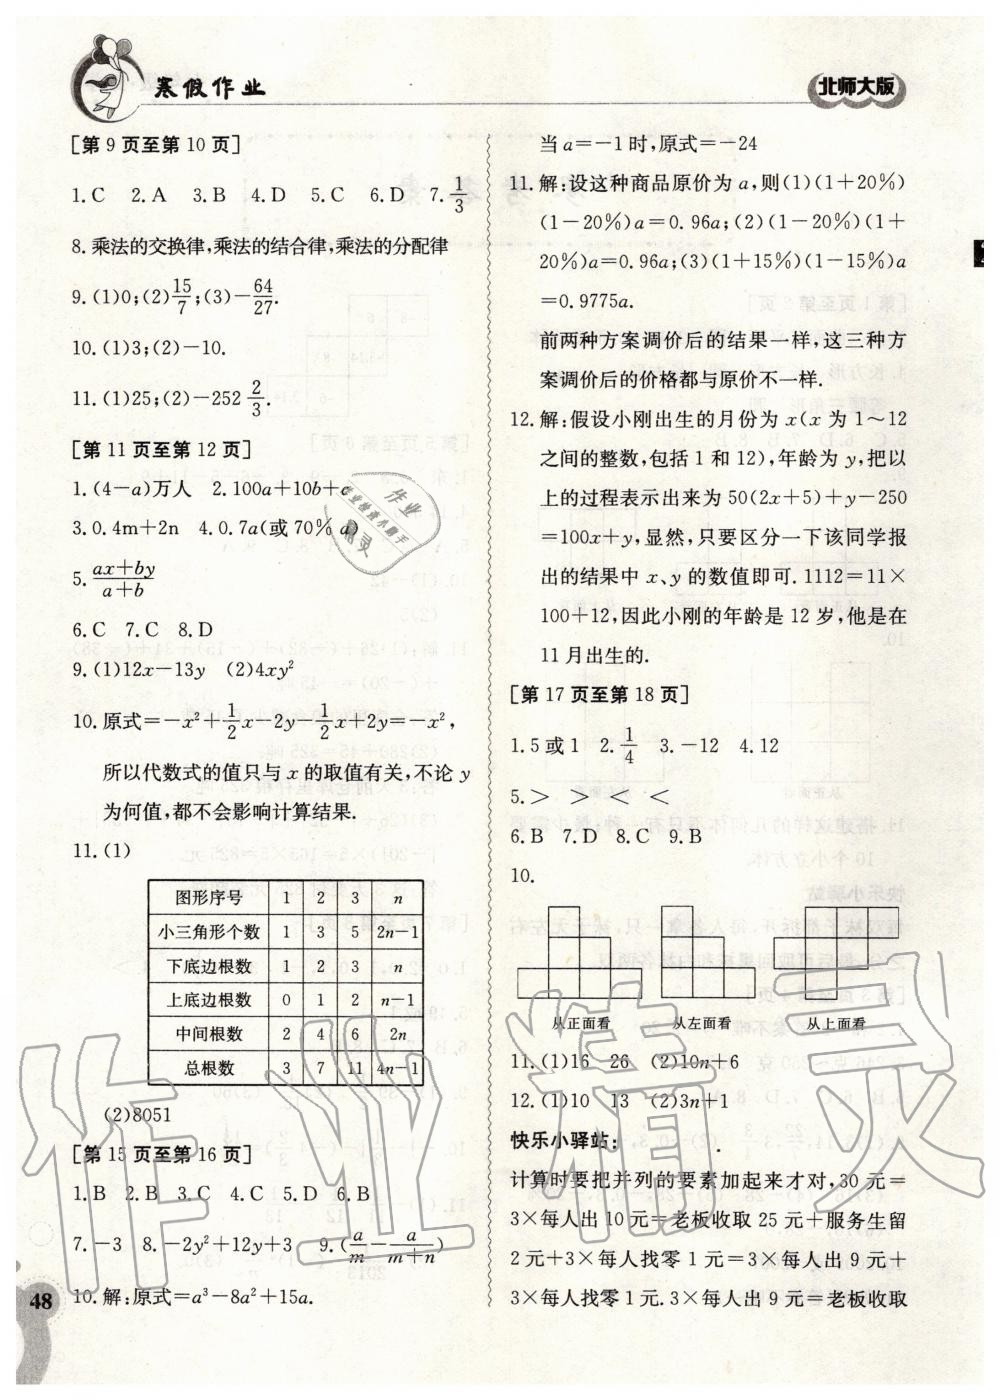 寒假作业
北师大版
[第 9 页至第 10 页]
1.C 2.A 3.B 4.D 5.C 6.D 7.1/3
8.乘法的交换律,乘法的结合律,乘法的分配律
9.(1)0;(2)15/7;(3)-64/27.
10.(1)3;(2)-10.
11.(1)25;(2)-252 2/3.
[第 11 页至第 12 页]
1.(4-a)万人 2.100a+10b+c
3.0.4m+2n 4.0.7a(或70% a)
5.(ax+by)/(a+b)
6.C 7.C 8.D
9.(1)12x-13y (2)4xy²
10.原式=-x²+1/2x-2y-1/2x+2y=-x²,
所以代数式的值只与 x 的取值有关,不论 y
为何值,都不会影响计算结果.
11.(1)
图形序号 1 2 3 n
小三角形个数 1 3 5 2n-1
下底边根数 1 2 3 n
上底边根数 0 1 2 n-1
中间根数 2 4 6 2n
总根数 3 7 11 4n-1
(2)8051
[第 15 页至第 16 页]
1.B 2.B 3.C 4.C 5.D 6.B
7.-3 8.-2y²+12y+3 9.(a/m-a/(m+n))
10.解:原式=a³-8a²+15a.
48
当 a=-1 时,原式=-24
11.解:设这种商品原价为 a,则(1)(1+20%)
(1-20%)a=0.96a;(2)(1-20%)(1+
20%)a=0.96a;(3)(1+15%)(1-15%)a
=0.9775a.
前两种方案调价后的结果一样,这三种方
案调价后的价格都与原价不一样.
12.解:假设小刚出生的月份为 x(x 为 1～12
之间的整数,包括 1 和 12),年龄为 y,把以
上的过程表示出来为 50(2x+5)+y-250
=100x+y,显然,只要区分一下该同学报
出的结果中 x、y 的数值即可.1112=11×
100+12,因此小刚的年龄是 12 岁,他是在
11 月出生的.
[第 17 页至第 18 页]
1.5 或 1 2.1/4 3.-12 4.12
5.> > < <
6.B 7.D 8.C 9.B
10.
从正面看 从左面看 从上面看
11.(1)16 26 (2)10n+6
12.(1)10 13 (2)3n+1
快乐小驿站:
计算时要把并列的要素加起来才对,30 元=
3×每人出 10 元=老板收取 25 元+服务生留
2 元+3×每人找零 1 元=3×每人出 9 元+
3×每人找零 1 元.3×每人出 9 元=老板收取
作业精灵